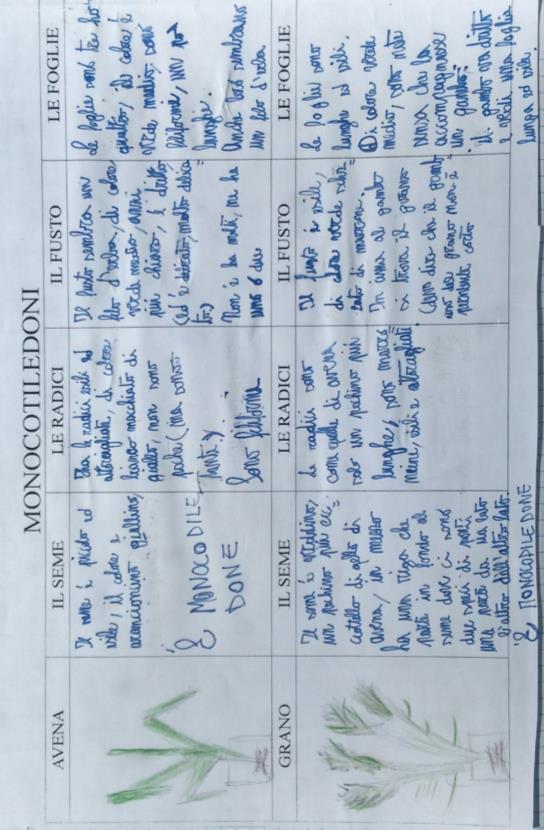 MONOCOTILEDONI
AVENA
IL SEME
IL RADICI
IL FUSTO
LE FOGLIE
Il seme è piccolo ed
esile, il colore è
arancioncino giallino,
È MONOCODILE
DONE
Ha le radici esili ed
attorcigliate, di colore
bianco macchiato di
giallo, non sono
poche (ma
Sono filiforme
Il fusto sembra un
filo d'erba, di colore
verde medio, anzi
più chiaro, è dritto
(ed è molto delica=
to)
Non è ha molti, ne ha
uno o due
Le foglie sono tre ho
quattro, il colore è
verde medio, sono
filiformi, un po'
lunghe.
Anche loro sembrano
un filo d'erba
GRANO
IL SEME
LE RADICI
IL FUSTO
LE FOGLIE
Il seme è
un pochino più cic=
cottello di quello di
avena, in mezzo
ha una riga che
parte in fondo al
seme dove ci sono
due specie di
una parte da un lato
e l'altro dall'altro lato.
È MONOCODILEDONE
Le radici sono
come quelle di avena
solo un pochino più
lunghe, sono marron=
cine, esili e attorcigliati
Il fusto è esile,
di colore verde
di marrone.
In cima al gambo
si trova il grano
(Avvo dire che il gamb
uno del grano non è
molto
Le foglie sono
lunghe ed esili.
Di colore verde
medio, sono nate
senza che la
accompagnasse
un gambo;
il gambo va dritto
e vedi una foglia
lunga ed esile.